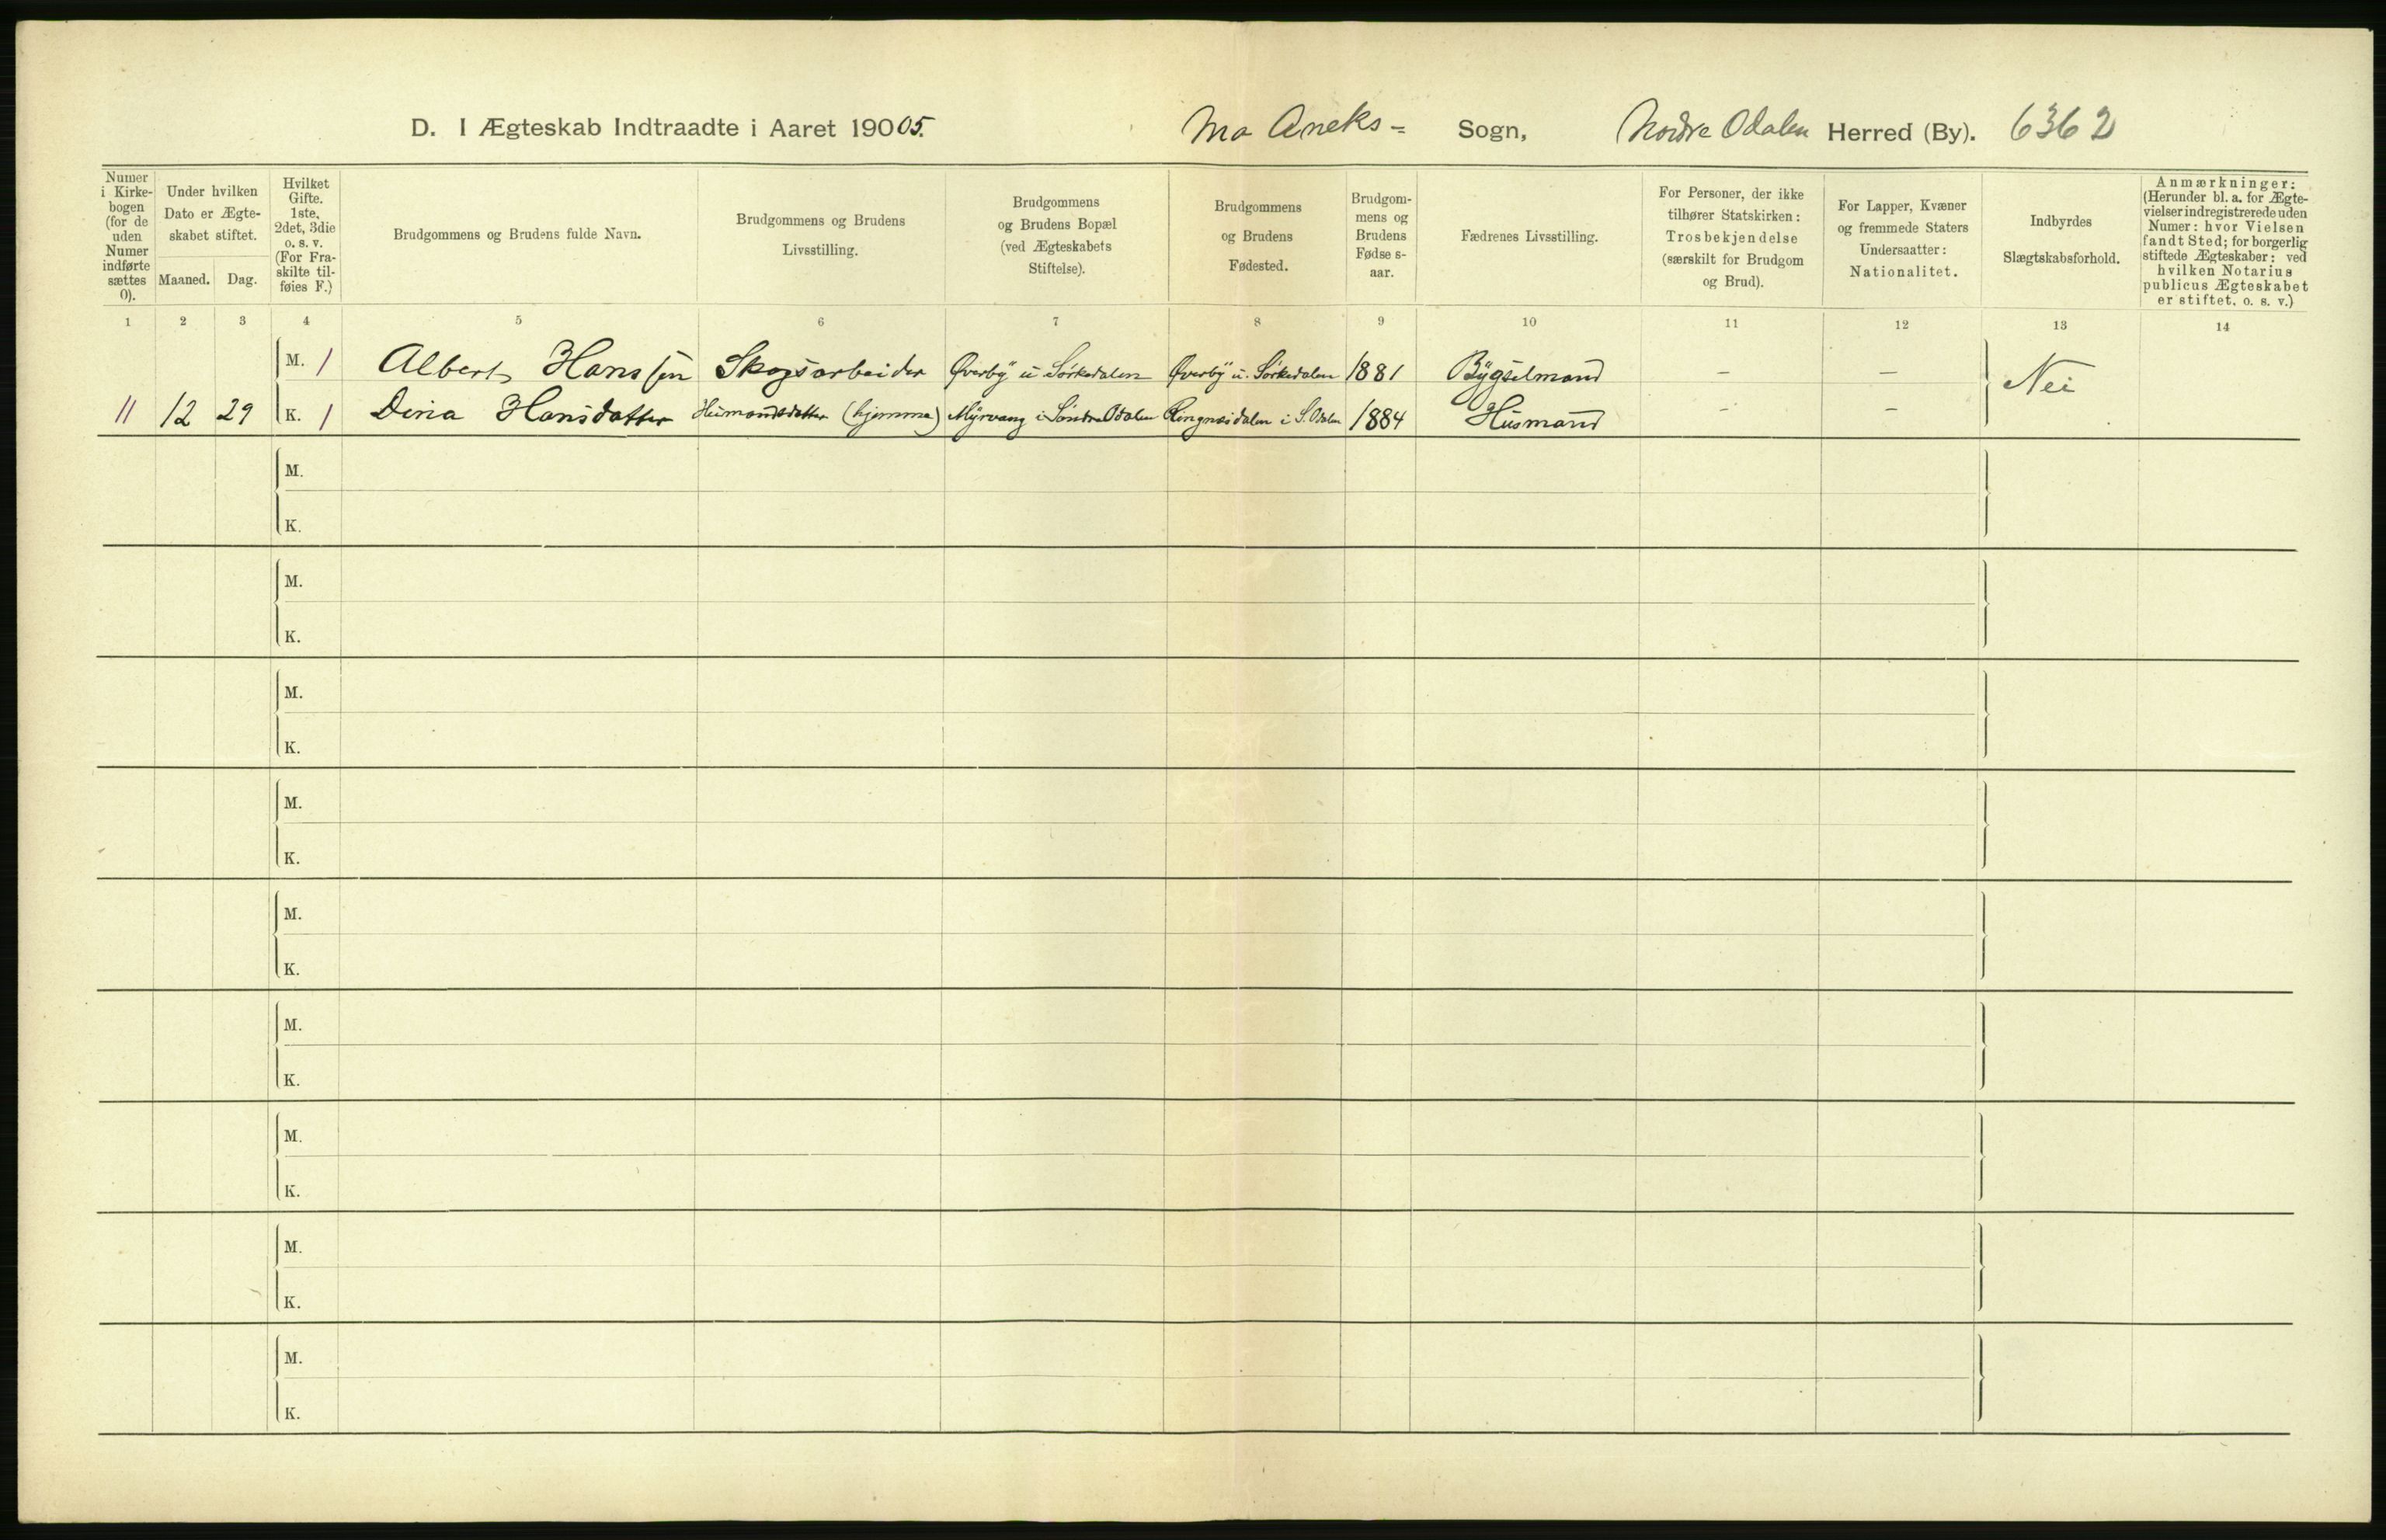 D. I Ægteskab Indtraadte i Aaret 19005. Mo Aneks= Sogn, Nordre Odalen Herred (By). 6362
Numer i Kirkebogen (for de uden Numer indførte sættes 0).
Under hvilken Dato er Ægteskabet stiftet.
Maaned. Dag.
Hvilket Gifte. 1ste, 2det, 3die o. s. v. (For Fraskilte tilføies F.)
Brudgommens og Brudens fulde Navn.
Brudgommens og Brudens Livsstilling.
Brudgommens og Brudens Bopæl (ved Ægteskabets Stiftelse).
Brudgommens og Brudens Fødested.
Brudgommens og Brudens Fødse s-aar.
Fædrenes Livsstilling.
For Personer, der ikke tilhører Statskirken: Trosbekjendelse (særskilt for Brudgom og Brud).
For Lapper, Kvæner og fremmede Staters Undersaatter: Nationalitet.
Indbyrdes Slægtskabsforhold.
Anmærkninger: (Herunder bl. a. for Ægtevielser indregistrerede uden Numer: hvor Vielsen fandt Sted; for borgerlig stiftede Ægteskaber: ved hvilken Notarius publicus Ægteskabet er stiftet. o. s. v.)
1 2 3 4 5 6 7 8 9 10 11 12 13 14
M. 1 Albert Hanssen Skogsarbeider Øverby i Sørkedalen Øverby i. Sørkedalen 1881 Bygselmand — — Nei
11 12 29 K. 1 Dina Hansdatter Husmandsdatter (hjemme) Myrvang i Søndre Odalen Ringnæsdalen i S. Odalen 1884 Husmand — —
M.
K.
M.
K.
M.
K.
M.
K.
M.
K.
M.
K.
M.
K.
M.
K.
M.
K.